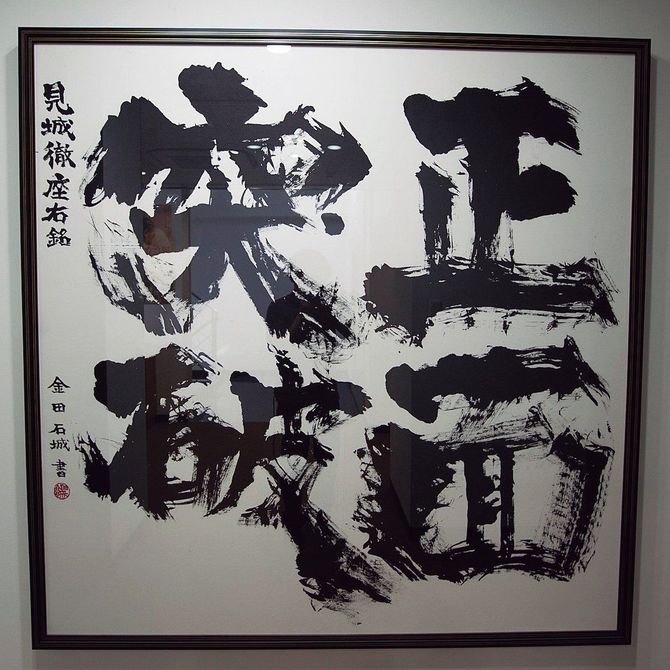 正面
突破
見城徹座右銘
金田石城書